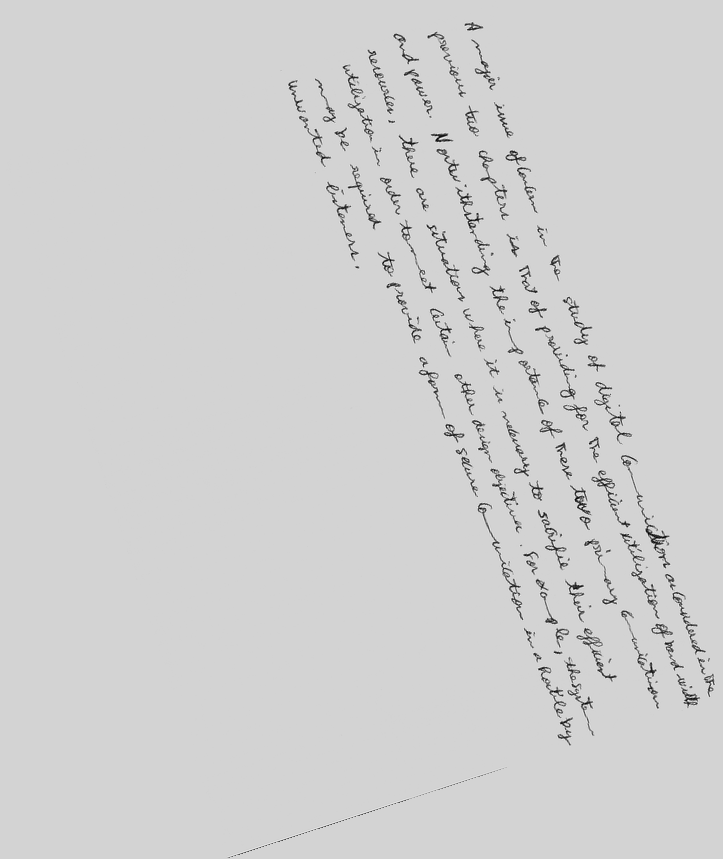 A major issue of concern in the study of digital communication as considered in the
previous two chapters is that of providing for the efficient utilization of band width
and power. Notwithstanding the importance of these two primary communication
resources, there are situations where it is necessary to sacrifie their efficient
utilization in order to meet certain other design objectives. For example, the system
may be required to provide a form of secure communication in a hostile by
unwanted listeners.